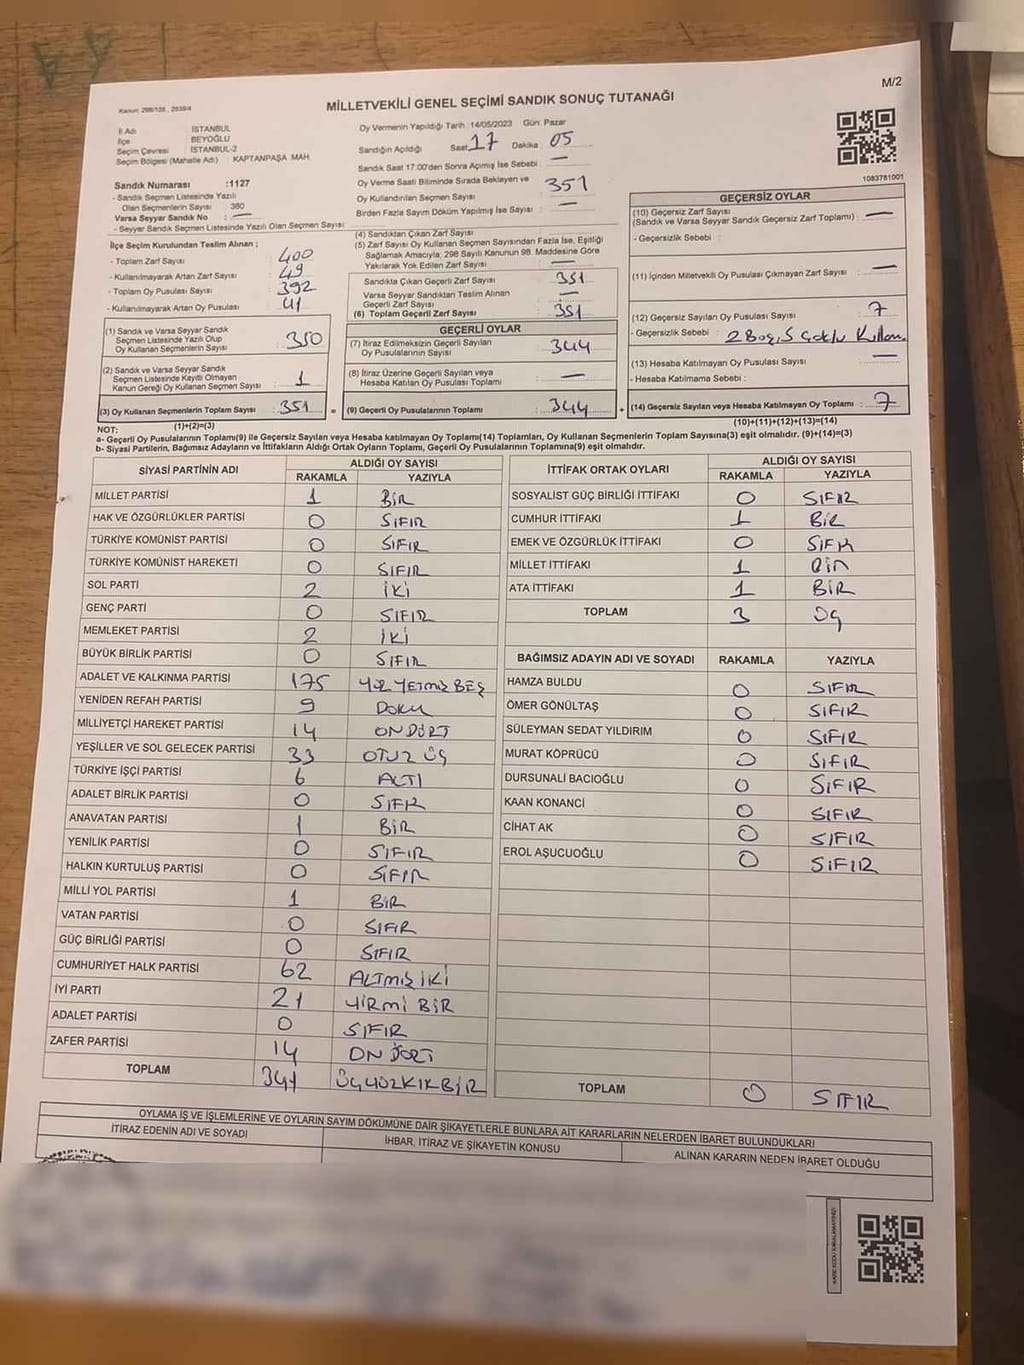 M/2
Kanun: 298/105 , 2839/4
MİLLETVEKİLİ GENEL SEÇİMİ SANDIK SONUÇ TUTANAĞI
İl Adı İSTANBUL
İlçe BEYOĞLU
Seçim Çevresi İSTANBUL-2
Seçim Bölgesi (Mahalle Adı) KAPTANPAŞA MAH.
Sandık Numarası :1127
- Sandık Seçmen Listesinde Yazılı
Olan Seçmenlerin Sayısı 380
Varsa Seyyar Sandık No : —
- Seyyar Sandık Seçmen Listesinde Yazılı Olan Seçmen Sayısı:
İlçe Seçim Kurulundan Teslim Alınan ;
- Toplam Zarf Sayısı : 400
- Kullanılmayarak Artan Zarf Sayısı : 49
- Toplam Oy Pusulası Sayısı : 392
- Kullanılmayarak Artan Oy Pusulası : 41
(1) Sandık ve Varsa Seyyar Sandık
Seçmen Listesinde Yazılı Olup
Oy Kullanan Seçmenlerin Sayısı : 350
(2) Sandık ve Varsa Seyyar Sandık
Seçmen Listesinde Kayıtlı Olmayan
Kanun Gereği Oy Kullanan Seçmen Sayısı : 1
(3) Oy Kullanan Seçmenlerin Toplam Sayısı : 351 =
(1)+(2)=(3)
Oy Vermenin Yapıldığı Tarih :14/05/2023 Gün: Pazar
Sandığın Açıldığı Saat 17 Dakika : 05
Sandık Saat 17:00'den Sonra Açılmış İse Sebebi : —
Oy Verme Saati Bitiminde Sırada Bekleyen ve
Oy Kullandırılan Seçmen Sayısı : 351
Birden Fazla Sayım Döküm Yapılmış İse Sayısı : —
(4) Sandıktan Çıkan Zarf Sayısı :
(5) Zarf Sayısı Oy Kullanan Seçmen Sayısından Fazla İse, Eşitliği
Sağlamak Amacıyla; 298 Sayılı Kanunun 98. Maddesine Göre
Yakılarak Yok Edilen Zarf Sayısı : —
Sandıkta Çıkan Geçerli Zarf Sayısı : 351
Varsa Seyyar Sandıktan Teslim Alınan
Geçerli Zarf Sayısı : —
(6) Toplam Geçerli Zarf Sayısı : 351
GEÇERLİ OYLAR
(7) İtiraz Edilmeksizin Geçerli Sayılan
Oy Pusulalarının Sayısı : 344
(8) İtiraz Üzerine Geçerli Sayılan veya
Hesaba Katılan Oy Pusulası Toplamı : —
(9) Geçerli Oy Pusulalarının Toplamı : 344 +
1083781001
GEÇERSİZ OYLAR
(10) Geçersiz Zarf Sayısı
(Sandık ve Varsa Seyyar Sandık Geçersiz Zarf Toplamı) : —
- Geçersizlik Sebebi :
(11) İçinden Milletvekili Oy Pusulası Çıkmayan Zarf Sayısı : —
(12) Geçersiz Sayılan Oy Pusulası Sayısı : 7
- Geçersizlik Sebebi : 2 Boş, 5 Çoklu Kullan.
(13) Hesaba Katılmayan Oy Pusulası Sayısı : —
- Hesaba Katılmama Sebebi :
(14) Geçersiz Sayılan veya Hesaba Katılmayan Oy Toplamı : 7
(10)+(11)+(12)+(13)=(14)
NOT:
a- Geçerli Oy Pusulalarının Toplamı(9) ile Geçersiz Sayılan veya Hesaba katılmayan Oy Toplamı(14) Toplamları, Oy Kullanan Seçmenlerin Toplam Sayısına(3) eşit olmalıdır. (9)+(14)=(3)
b- Siyasi Partilerin, Bağımsız Adayların ve İttifakların Aldığı Ortak Oyların Toplamı, Geçerli Oy Pusulalarının Toplamına(9) eşit olmalıdır.
SİYASİ PARTİNİN ADI ALDIĞI OY SAYISI
RAKAMLA YAZIYLA
MİLLET PARTİSİ 1 BİR
HAK VE ÖZGÜRLÜKLER PARTİSİ 0 SIFIR
TÜRKİYE KOMÜNİST PARTİSİ 0 SIFIR
TÜRKİYE KOMÜNİST HAREKETİ 0 SIFIR
SOL PARTİ 2 İKİ
GENÇ PARTİ 0 SIFIR
MEMLEKET PARTİSİ 2 İKİ
BÜYÜK BİRLİK PARTİSİ 0 SIFIR
ADALET VE KALKINMA PARTİSİ 175 YÜZ YETMİŞ BEŞ
YENİDEN REFAH PARTİSİ 9 DOKUZ
MİLLİYETÇİ HAREKET PARTİSİ 14 ON DÖRT
YEŞİLLER VE SOL GELECEK PARTİSİ 33 OTUZ ÜÇ
TÜRKİYE İŞÇİ PARTİSİ 6 ALTI
ADALET BİRLİK PARTİSİ 0 SIFIR
ANAVATAN PARTİSİ 1 BİR
YENİLİK PARTİSİ 0 SIFIR
HALKIN KURTULUŞ PARTİSİ 0 SIFIR
MİLLİ YOL PARTİSİ 1 BİR
VATAN PARTİSİ 0 SIFIR
GÜÇ BİRLİĞİ PARTİSİ 0 SIFIR
CUMHURİYET HALK PARTİSİ 62 ALTMIŞ İKİ
İYİ PARTİ 21 YİRMİ BİR
ADALET PARTİSİ 0 SIFIR
ZAFER PARTİSİ 14 ON DÖRT
TOPLAM 341 ÜÇYÜZKIRKBİR
İTTİFAK ORTAK OYLARI ALDIĞI OY SAYISI
RAKAMLA YAZIYLA
SOSYALİST GÜÇ BİRLİĞİ İTTİFAKI 0 SIFIR
CUMHUR İTTİFAKI 1 BİR
EMEK VE ÖZGÜRLÜK İTTİFAKI 0 SIFIR
MİLLET İTTİFAKI 1 BİR
ATA İTTİFAKI 1 BİR
TOPLAM 3 ÜÇ
BAĞIMSIZ ADAYIN ADI VE SOYADI RAKAMLA YAZIYLA
HAMZA BULDU 0 SIFIR
ÖMER GÖNÜLTAŞ 0 SIFIR
SÜLEYMAN SEDAT YILDIRIM 0 SIFIR
MURAT KÖPRÜCÜ 0 SIFIR
DURSUNALİ BACIOĞLU 0 SIFIR
KAAN KONANCİ 0 SIFIR
CİHAT AK 0 SIFIR
EROL AŞUCUOĞLU 0 SIFIR
TOPLAM 0 SIFIR
OYLAMA İŞ VE İŞLEMLERİNE VE OYLARIN SAYIM DÖKÜMÜNE DAİR ŞİKAYETLERLE BUNLARA AİT KARARLARIN NELERDEN İBARET BULUNDUKLARI
İTİRAZ EDENİN ADI VE SOYADI İHBAR, İTİRAZ VE ŞİKAYETİN KONUSU ALINAN KARARIN NEDEN İBARET OLDUĞU
KARE KODU KARALAMAYINIZ!